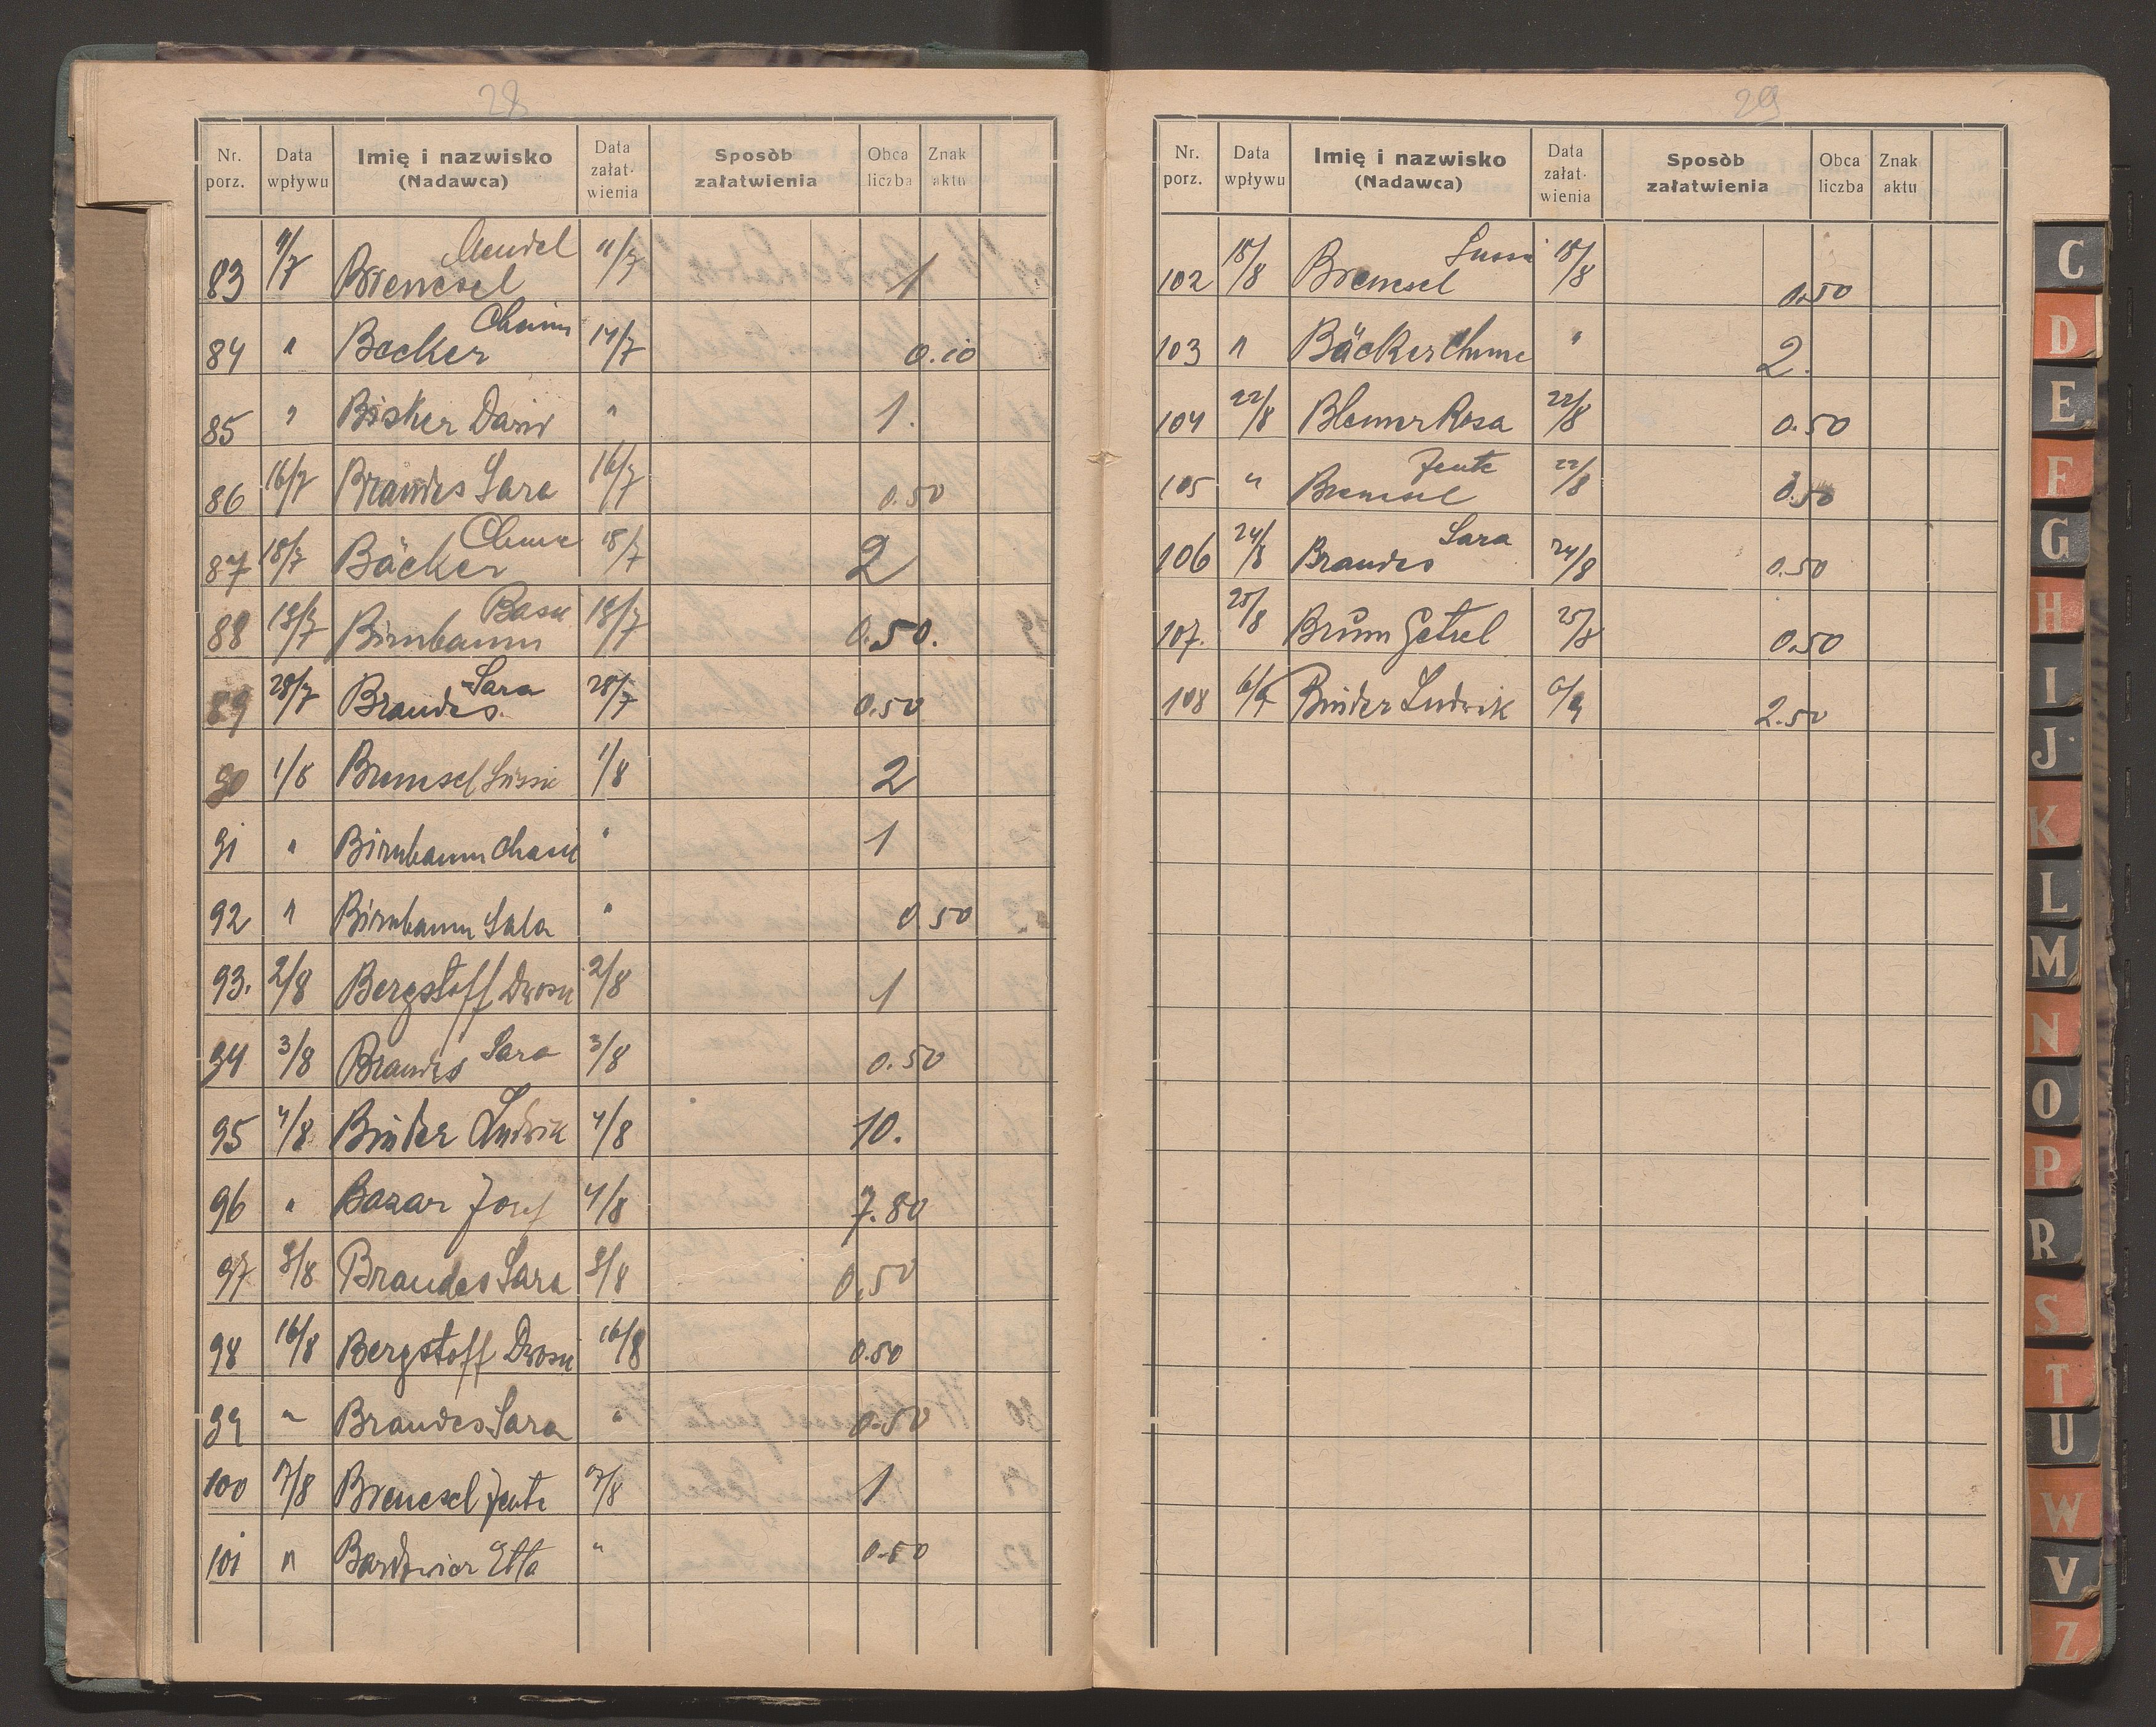 28
Nr. porz. Data wpływu Imię i nazwisko (Nadawca) Data załat- wienia Sposòb załatwienia Obca liczba Znak aktu
83 11/7 Bremsel Mendel 11/7 1
84 " Becker Chaim 14/7 0.10
85 " Bisker Dawid " 1.
86 16/7 Brandes Sara 16/7 0.50
87 18/7 Bäcker Chume 18/7 2
88 19/7 Birnbaum Basie 19/7 0.50.
89 28/7 Brandes Sara 28/7 0.50
90 1/8 Bremsel Sussie 1/8 2
91 " Birnbaum " 1
92 " Birnbaum Sala " 0.50
93. 2/8 Bergstoff 2/8 1
94 3/8 Brandes Sara 3/8 0.50
95 4/8 Binder Ludwik 4/8 10.
96 " Bazar Josef 4/8 7.80
97 8/8 Brandes Sara 8/8 0.50
98 16/8 Bergstoff 16/8 0.50
99 " Brandes Sara " 0.50
100 17/8 Bremsel Jente 17/8 1
101 " Etta " 0.50
29
Nr. porz. Data wpływu Imię i nazwisko (Nadawca) Data załat- wienia Sposòb załatwienia Obca liczba Znak aktu
102 18/8 Bremsel Sussi 18/8 0.50
103 " Bäcker Chume " 2.
104 22/8 Rosa 22/8 0.50
105 " Bremsel Jente 22/8 0.50
106 24/8 Brandes Sara 24/8 0.50
107. 25/8 Brum Getzel 25/8 0.50
108 6/9 Binder Ludwik 6/9 2.50
C
D
E
F
G
H
I
J
K
L
M
N
O
P
R
S
T
U
W
V
Z